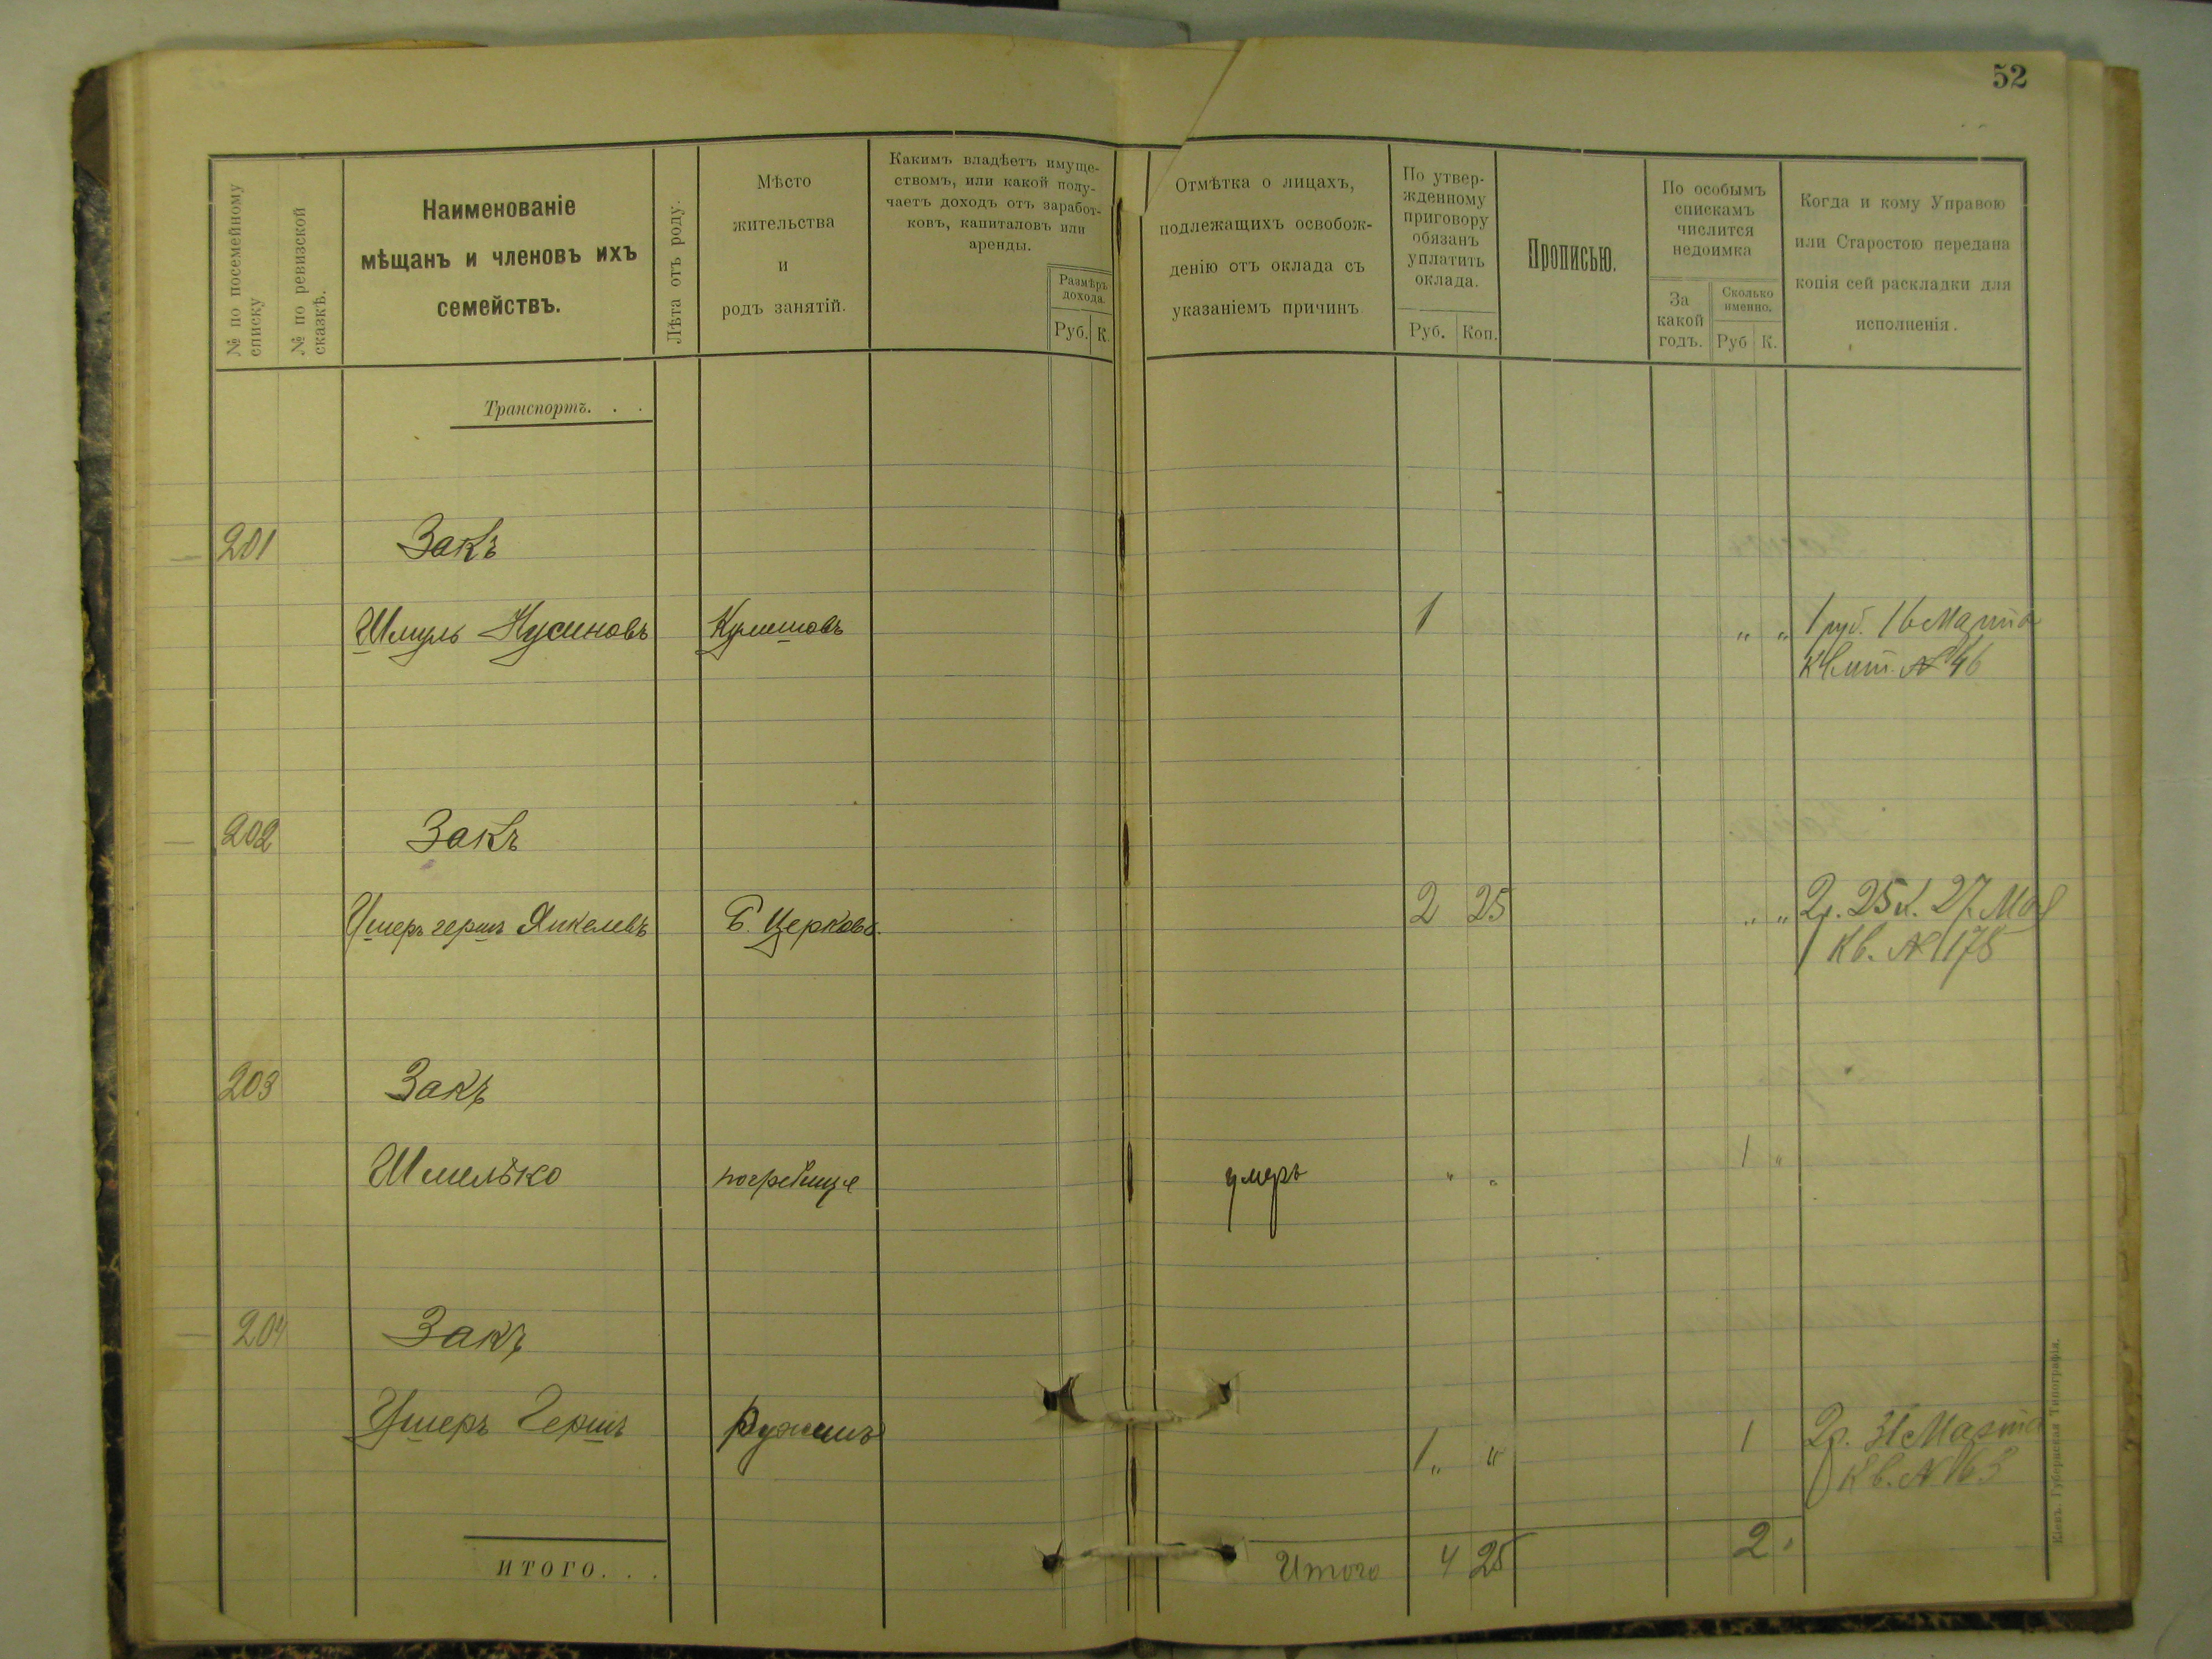 52
№ по посемейному списку
№ по ревизской сказкѣ.
Наименованіе
мѣщанъ и членовъ ихъ
семействъ.
Лѣта отъ роду.
Мѣсто
жительства
и
родъ занятій.
Какимъ владѣетъ имуще-
ствомъ, или какой полу-
чаетъ доходъ отъ заработ-
ковъ, капиталовъ или
аренды.
Размѣръ
дохода.
Руб. К.
Отмѣтка о лицахъ,
подлежащихъ освобож-
денію отъ оклада съ
указаніемъ причинъ
По утвер-
жденному
приговору
обязанъ
уплатить
оклада.
Руб. Коп.
Прописью.
По особымъ
спискамъ
числится
недоимка
За
какой
годъ.
Сколько
именно.
Руб К.
Когда и кому Управою
или Старостою передана
копія сей раскладки для
исполненія.
Транспортъ. . .
201 Закъ
Шмуль Нусиновъ 1 „ „ 1 руб. 16 Марта
Квит. № 46
202 Закъ
Ушеръ герш Янкелевъ Б. Церковь. 2 25 „ „ 2р. 25 к. 27. Мая
Кв. № 178
203 Закъ
Шмелько погребище умеръ „ „ 1 „
204 Закъ
Ушеръ Гершъ Ружинъ 1 „ „ 1 2р. 31 Марта
Кв. № 163
ИТОГО. . . Итого 4 25 2 „
Кіевъ. Губернская Типографія.